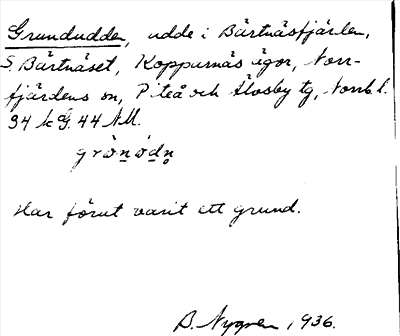 Grundudden, udde i Bärtnäsfjärden,
S. Bärtnäset, Koppurnäs ägor, Norr-
fjärdens sn, Piteå och Älvsby tg, Norrb. l.
34 k G. 44 N.M.
grònódn
Har förut varit ett grund.
B. Nygren, 1936.